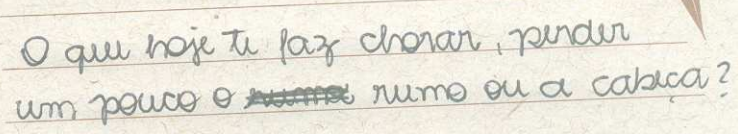 O que hoje te faz chorar, perder
um pouco o rumo ou a cabeça?